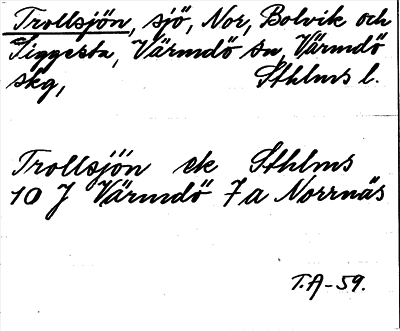 Trollsjön, sjö, Nor, Bolvik och
Siggesta, Värmdö sn, Värmdö
skg, Sthlms l.
Trollsjön ek Sthlms
10 J Värmdö 7 a Norrnäs
T.A-59.